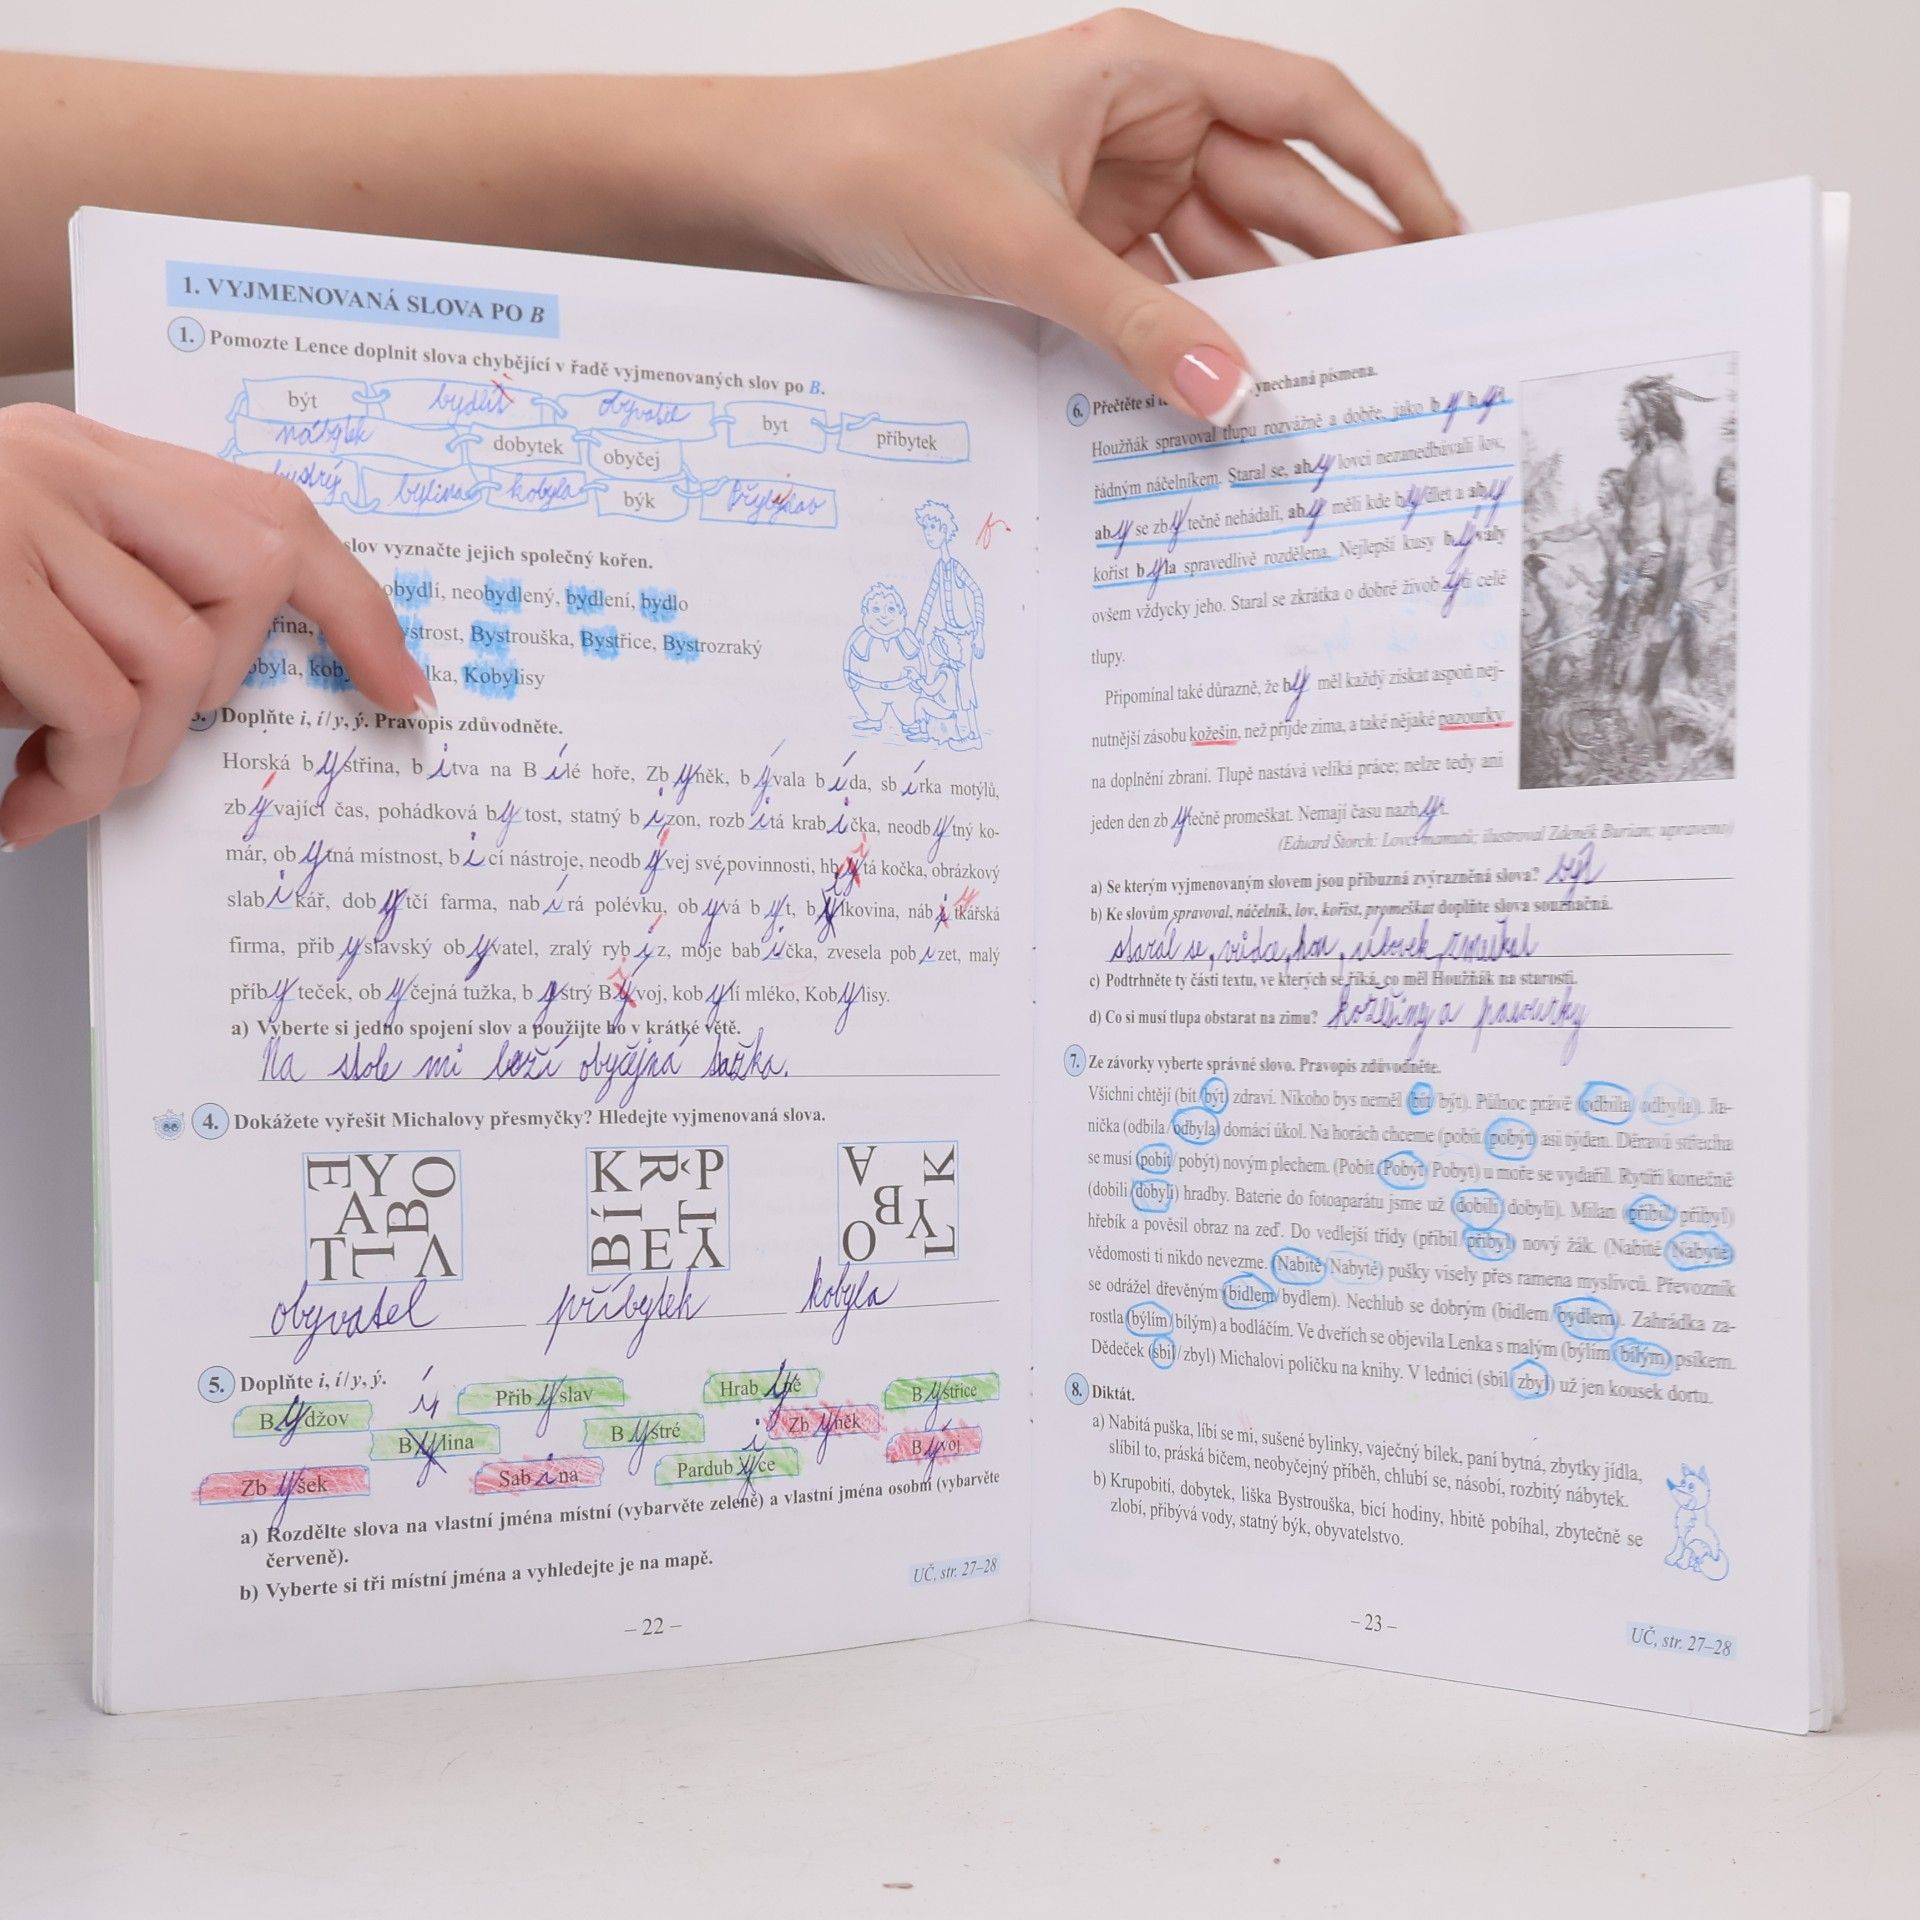 1. VYJMENOVANÁ SLOVA PO B
1. Pomozte Lence doplnit slova chybějící v řadě vyjmenovaných slov po B.
být bydlit obyvatel byt příbytek
nábytek dobytek obyčej
bystrý bylina kobyla býk Přibyslav
slov vyznačte jejich společný kořen.
obydlí, neobydlený, bydlení, bydlo
Bystrouška, Bystřice, Bystrozraký
Kobylisy
Doplňte i, í/y, ý. Pravopis zdůvodněte.
Horská bystřina, bitva na Bílé hoře, Zbyněk, bývala bída, sbírka motýlů,
zbývající čas, pohádková bytost, statný bizon, rozbitá krabička, neodbytný ko-
már, obytná místnost, bicí nástroje, neodbývej své povinnosti, hbitá kočka, obrázkový
slabikář, dobytčí farma, nabírá polévku, obývá byt, bylkovina, nábytkářská
firma, přibyslavský obyvatel, zralý rybíz, moje babička, zvesela pobízet, malý
příbyteček, obyčejná tužka, bystrý Bivoj, kobylí mléko, Kobylisy.
a) Vyberte si jedno spojení slov a použijte ho v krátké větě.
Na stole mi leží obyčejná tužka.
4. Dokážete vyřešit Michalovy přesmyčky? Hledejte vyjmenovaná slova.
E Y O A B T L V K Ř P Í T B E Y A K B Y O L
obyvatel příbytek kobyla
5. Doplňte i, í/y, ý.
Bydžov Přibyslav Hrabyně Bystřice
Bílina Bystré Zbyněk Bývoj
Zbyšek Sabina Pardubice
a) Rozdělte slova na vlastní jména místní (vybarvěte zeleně) a vlastní jména osobní (vybarvěte
červeně).
b) Vyberte si tři místní jména a vyhledejte je na mapě.
UČ, str. 27–28
– 22 –
6. Přečtěte si vynechaná písmena.
Houžňák spravoval tlupu rozvážně a dobře, jako by byl
řádným náčelníkem. Staral se, aby lovci nezanedbávali lov,
aby se zbytečně nehádali, aby měli kde bydlet a aby
kořist byla spravedlivě rozdělena. Nejlepší kusy bývaly
ovšem vždycky jeho. Staral se zkrátka o dobré živobytí celé
tlupy.
Připomínal také důrazně, že by měl každý získat aspoň nej-
nutnější zásobu kožešin, než přijde zima, a také nějaké pazourky
na doplnění zbraní. Tlupě nastává veliká práce; nelze tedy ani
jeden den zbytečně promeškat. Nemají času nazbyt.
(Eduard Štorch: Lovci mamutů; ilustroval Zdeněk Burian; upraveno)
a) Se kterým vyjmenovaným slovem jsou příbuzná zvýrazněná slova? být
b) Ke slovům spravoval, náčelník, lov, kořist, promeškat doplňte slova souznačná.
staral se, vůdce, hon, úlovek, zmeškal
c) Podtrhněte ty části textu, ve kterých se říká, co měl Houžňák na starosti.
d) Co si musí tlupa obstarat na zimu? kožešiny a pazourky
7. Ze závorky vyberte správné slovo. Pravopis zdůvodněte.
Všichni chtějí (bít/být) zdraví. Nikoho bys neměl (bít/být). Půlnoc právě (odbila/odbyla). Ja-
nička (odbila/odbyla) domácí úkol. Na horách chceme (pobít/pobýt) asi týden. Děravá střecha
se musí (pobít/pobýt) novým plechem. (Pobít/Pobýt/Pobyt) u moře se vydařil. Rytíři konečně
(dobili/dobyli) hradby. Baterie do fotoaparátu jsme už (dobili/dobyli). Milan (přibil/přibyl)
hřebík a pověsil obraz na zeď. Do vedlejší třídy (přibil/přibyl) nový žák. (Nabité/Nabyté)
vědomosti ti nikdo nevezme. (Nabité/Nabyté) pušky visely přes ramena myslivců. Převozník
se odrážel dřevěným (bidlem/bydlem). Nechlub se dobrým (bidlem/bydlem). Zahrádka za-
rostla (býlím/bílým) a bodláčím. Ve dveřích se objevila Lenka s malým (býlím/bílým) psíkem.
Dědeček (sbil/zbyl) Michalovi poličku na knihy. V lednici (sbil/zbyl) už jen kousek dortu.
8. Diktát.
a) Nabitá puška, líbí se mi, sušené bylinky, vaječný bílek, paní bytná, zbytky jídla,
slíbil to, práská bičem, neobyčejný příběh, chlubí se, násobí, rozbitý nábytek.
b) Krupobití, dobytek, liška Bystrouška, bicí hodiny, hbitě pobíhal, zbytečně se
zlobí, přibývá vody, statný býk, obyvatelstvo.
– 23 –
UČ, str. 27–28